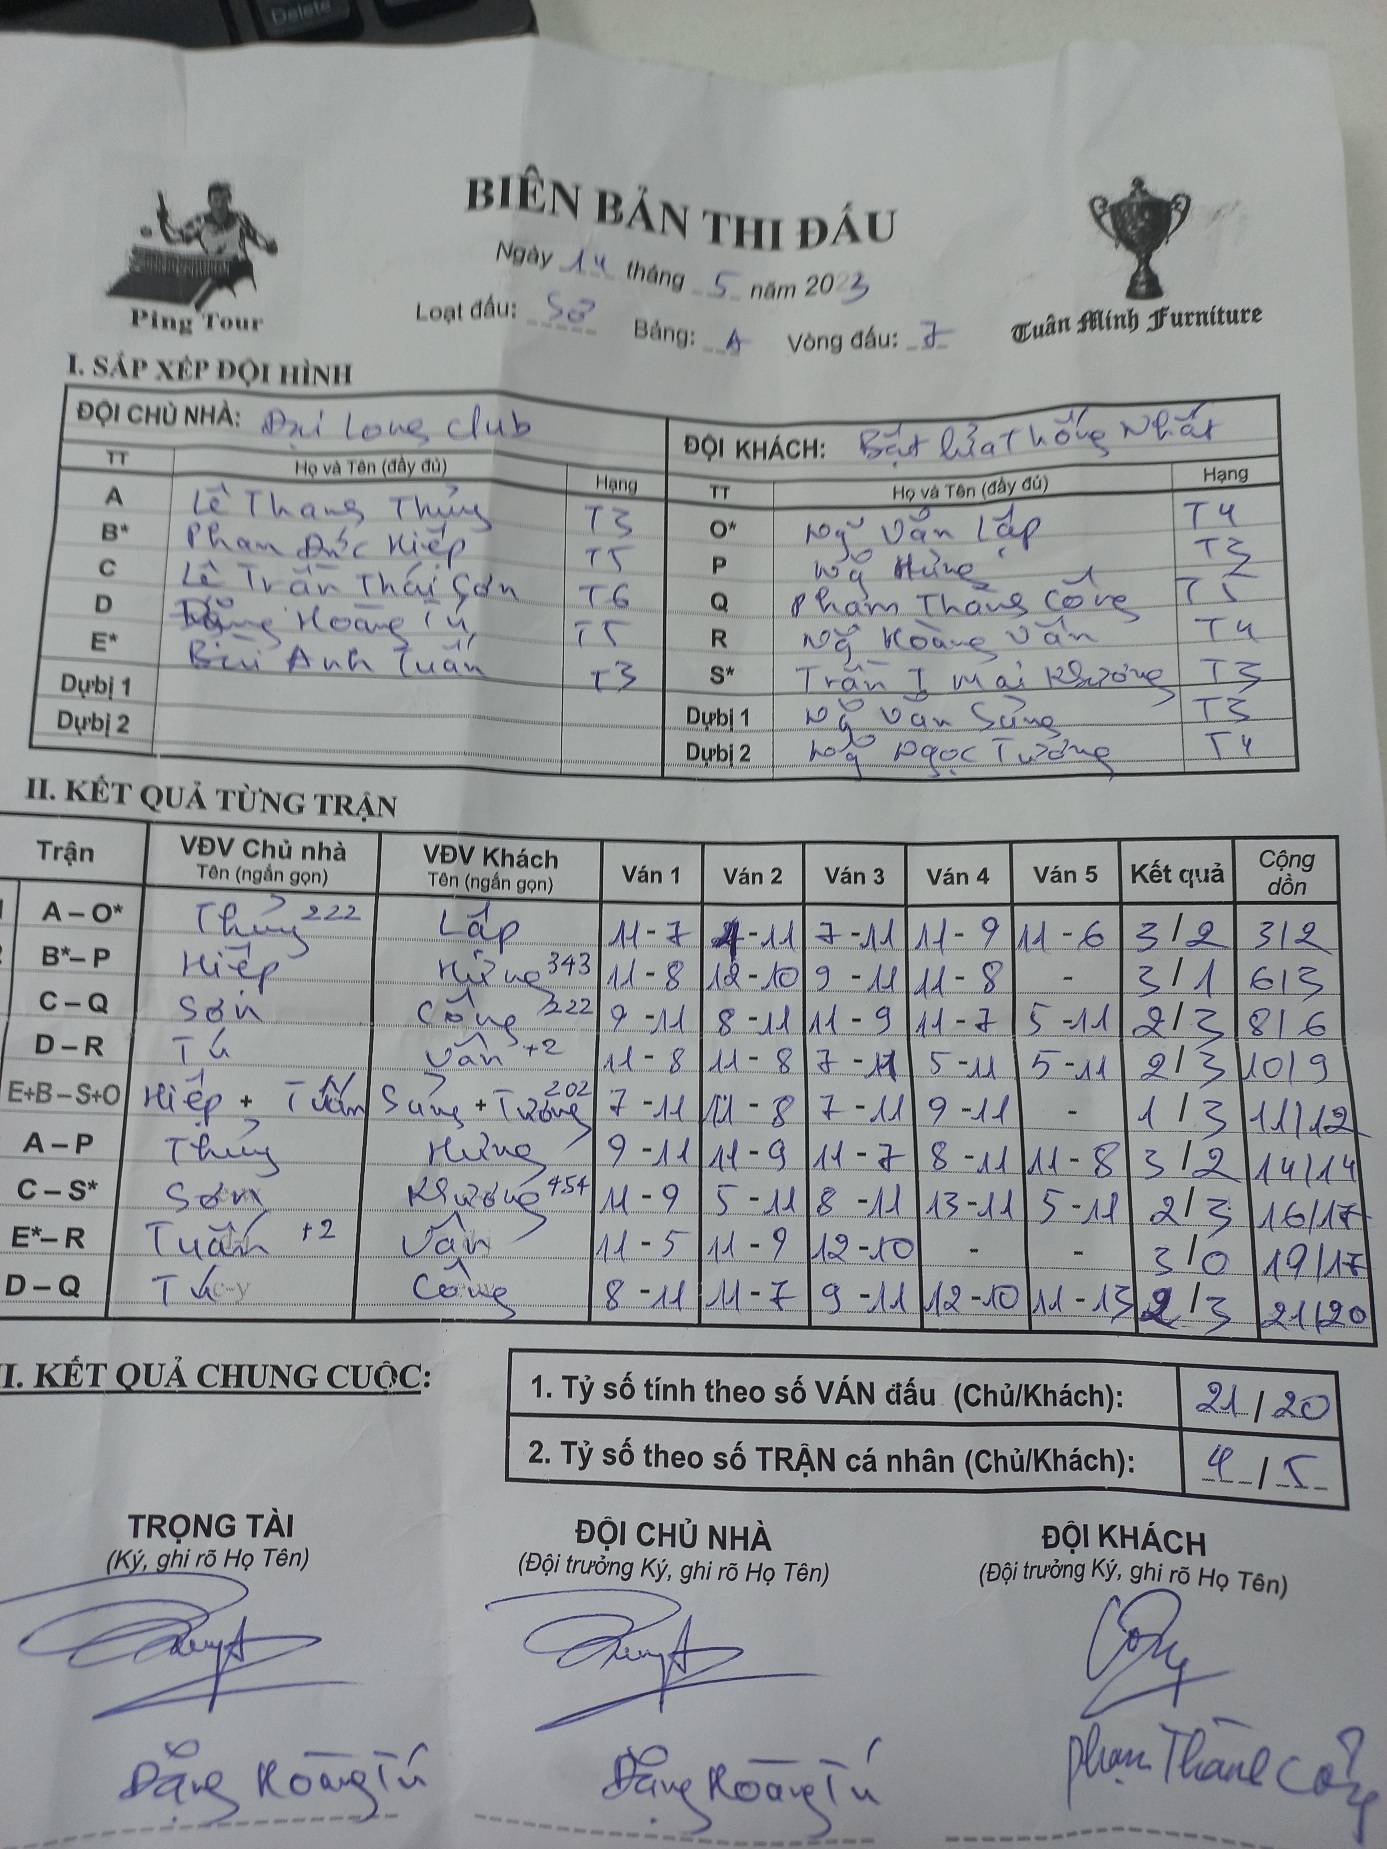 Delete
BIÊN BẢN THI ĐẤU
Ngày 14 tháng 5 năm 2023
Loạt đấu: Bảng: A Vòng đấu: 7
Ping Tour
Tuân Minh Furniture
I. SẮP XẾP ĐỘI HÌNH
ĐỘI CHỦ NHÀ: Đại Long club ĐỘI KHÁCH: Bật lửa Thống Nhất
TT Họ và Tên (đầy đủ) Hạng TT Họ và Tên (đầy đủ) Hạng
A Lê Thang Thủy T3 O* Ng~ Văn Lắp T4
B* Phạm Đức Hiếp T5 P Ng~ Hùng T3
C Lê Trần Thái Sơn T6 Q Phạm Thành Công T5
D Đặng Hoàng Tú T5 R Ng~ Hoàng Vân T4
E* Bùi Anh Tuấn T3 S* Trần T Mai Khương T3
Dự bị 1 Dự bị 1 Ng~ Văn Sủng T3
Dự bị 2 Dự bị 2 Ng~ Ngọc Tưởng T4
II. KẾT QUẢ TỪNG TRẬN
Trận VĐV Chủ nhà VĐV Khách Ván 1 Ván 2 Ván 3 Ván 4 Ván 5 Kết quả Cộng dồn
Tên (ngắn gọn) Tên (ngắn gọn)
A – O* Thủy 222 Lắp 11 - 7 4 - 11 7 - 11 11 - 9 11 - 6 3 / 2 3/2
B* – P Hiếp Hùng 343 11 - 8 12 - 10 9 - 11 11 - 8 - 3 / 1 6/3
C – Q Sơn Công 222 9 - 11 8 - 11 11 - 9 11 - 7 5 - 11 2 / 3 8/6
D – R Tú Vân +2 11 - 8 11 - 8 7 - 11 5 - 11 5 - 11 2 / 3 10/9
E+B – S+O Hiếp + Tuấn Sủng + Tưởng 202 7 - 11 11 - 8 7 - 11 9 - 11 - 1 / 3 11/12
A – P Thủy Hùng 9 - 11 11 - 9 11 - 7 8 - 11 11 - 8 3 / 2 14/14
C – S* Sơn Khương 454 11 - 9 5 - 11 8 - 11 13 - 11 5 - 11 2 / 3 16/17
E* – R Tuấn +2 Vân 11 - 5 11 - 9 12 - 10 - - 3 / 0 19/17
D – Q Tú Công 8 - 11 11 - 7 9 - 11 12 - 10 11 - 13 2 / 3 21/20
I. KẾT QUẢ CHUNG CUỘC:
1. Tỷ số tính theo số VÁN đấu (Chủ/Khách): 21 / 20
2. Tỷ số theo số TRẬN cá nhân (Chủ/Khách): 4 / 5
TRỌNG TÀI ĐỘI CHỦ NHÀ ĐỘI KHÁCH
(Ký, ghi rõ Họ Tên) (Đội trưởng Ký, ghi rõ Họ Tên) (Đội trưởng Ký, ghi rõ Họ Tên)
Công
Đặng Hoàng Tú Đặng Hoàng Tú Phạm Thành Công